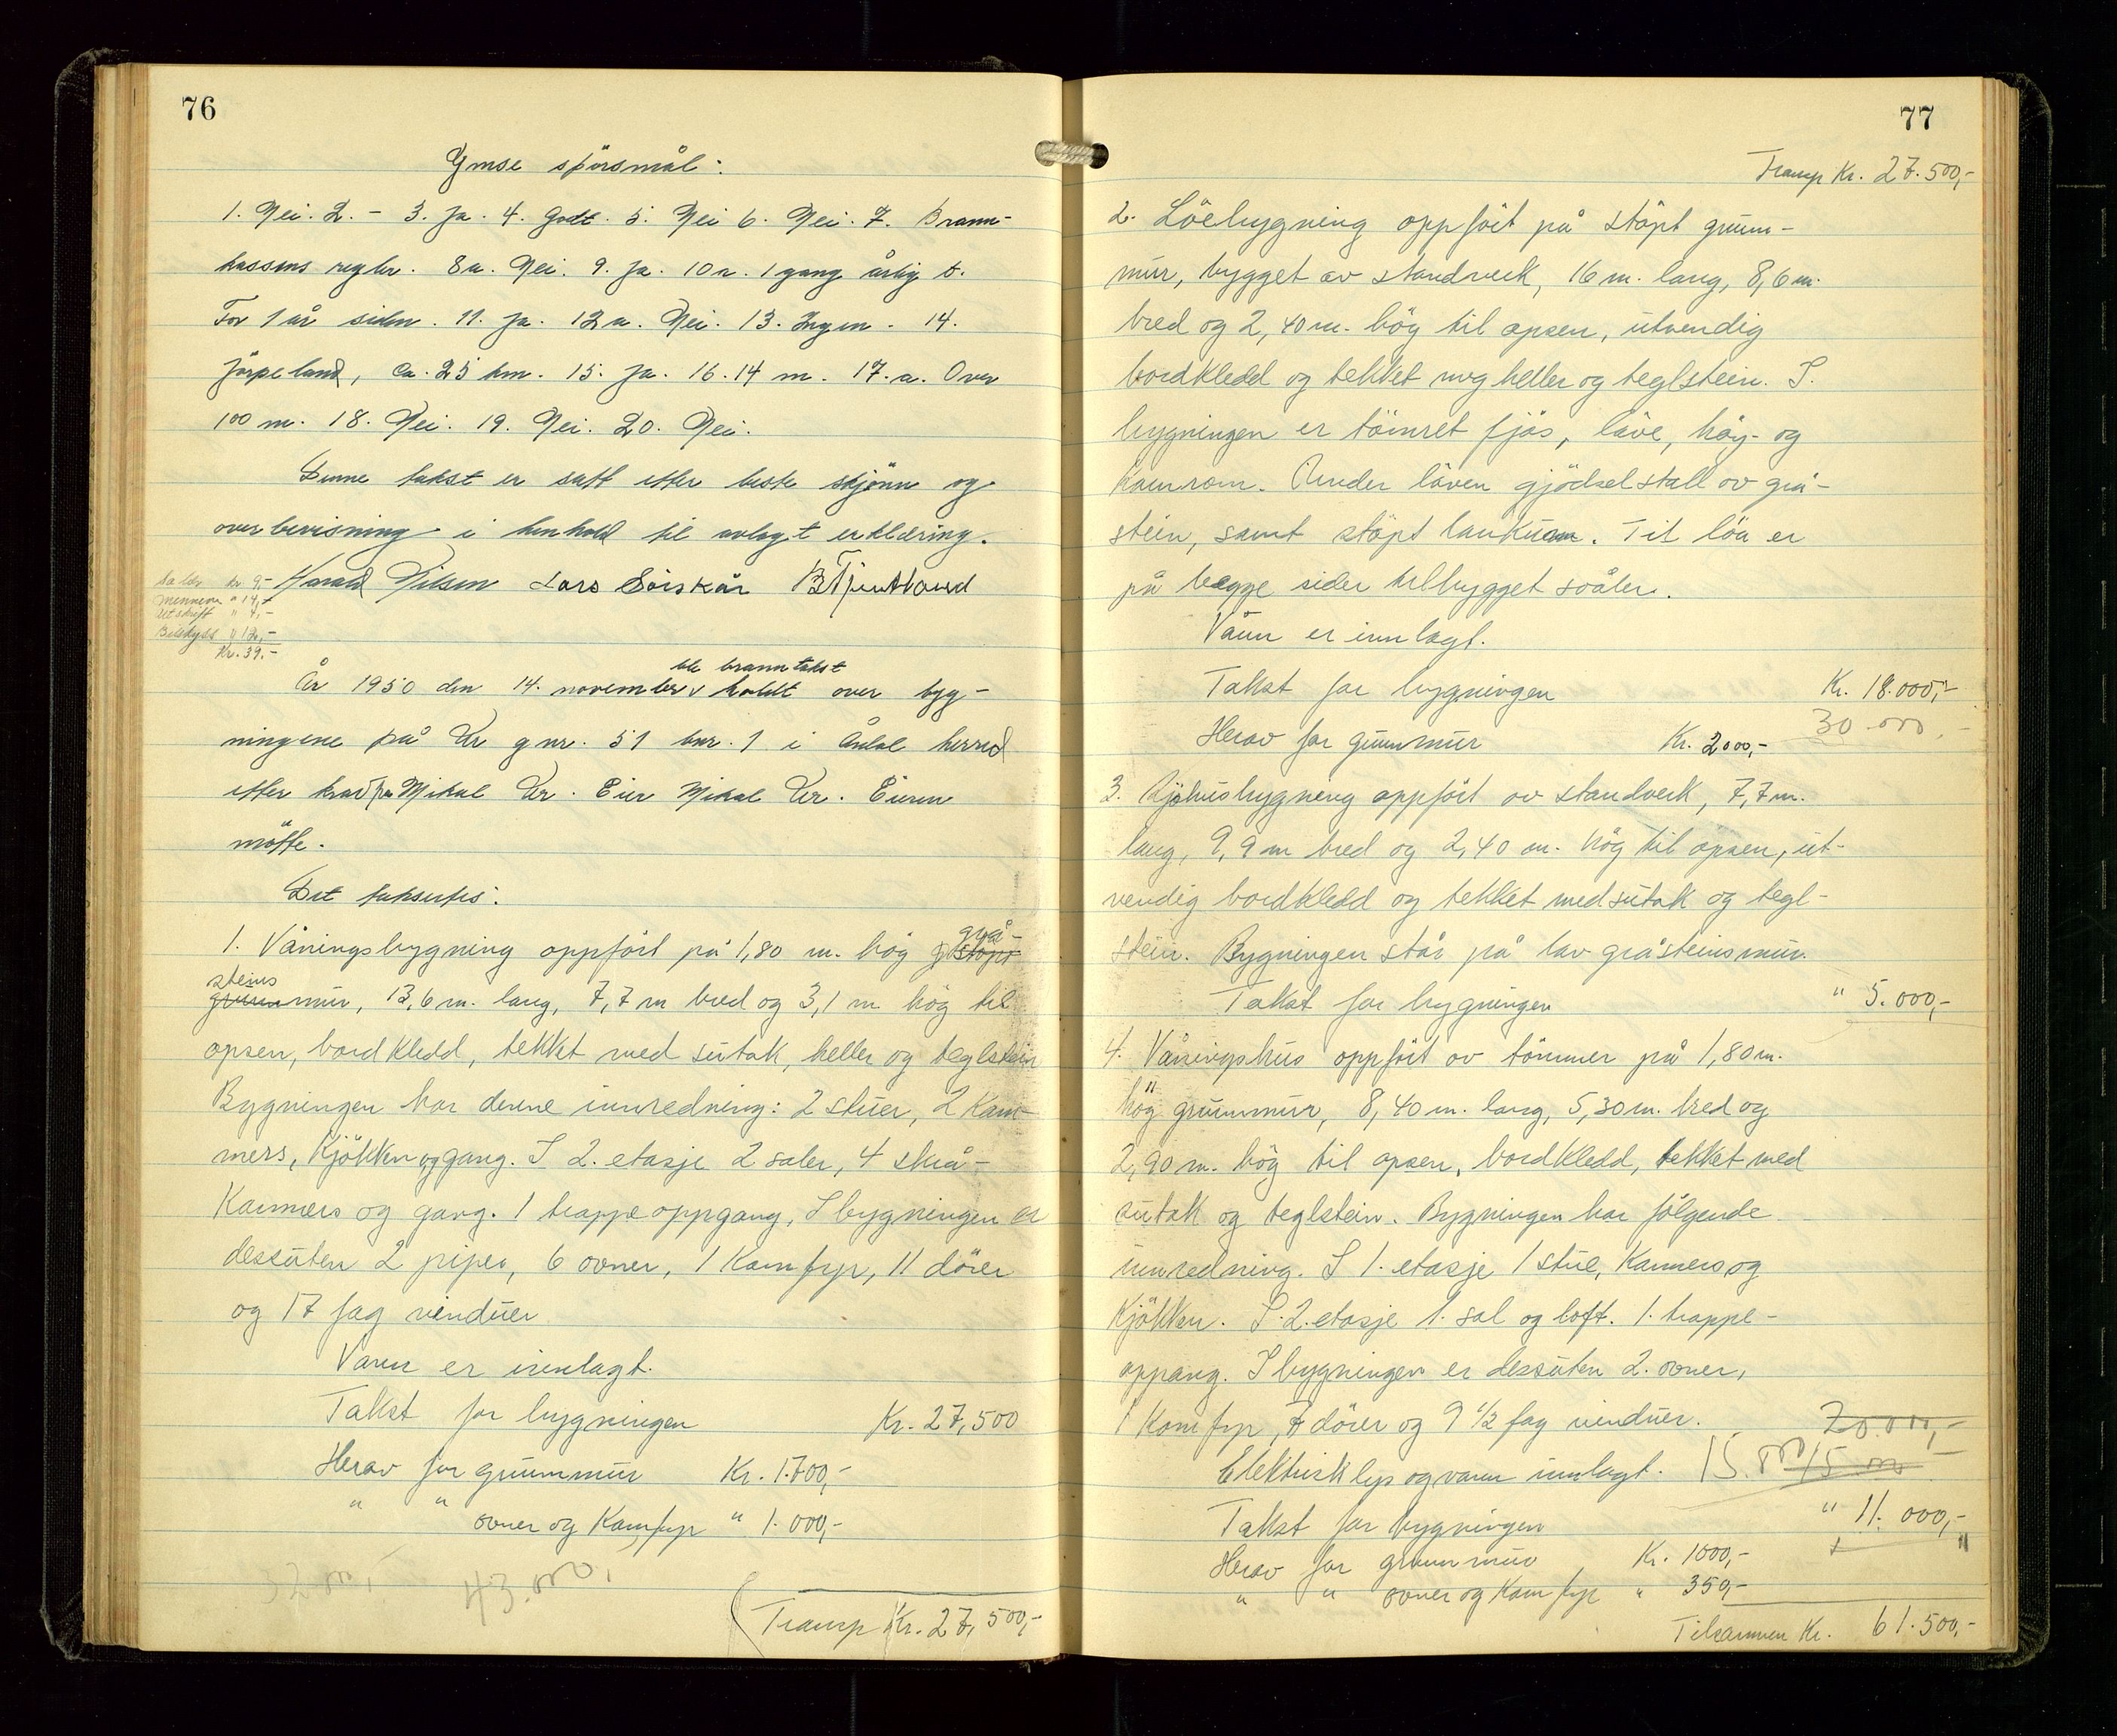 76
Ymse spörsmål:
1. Nei. 2. – 3. Ja. 4. Godt. 5. Nei 6. Nei. 7. Brann-
kassens regler. 8a. Nei. 9. Ja. 10a. 1 gang årlig b.
For 1 år siden. 11. Ja. 12a. Nei. 13. Ingen. 14.
Jörpeland, ca. 25 km. 15. Ja. 16. 14 m. 17. a. Over
100 m. 18. Nei. 19. Nei. 20. Nei.
Denne takst er satt etter beste skjönn og
overbevisning i henhold til avlagt erklæring.
Harald Nilsen Lars Söiskår B Tjentland
kr 9,-
Mennene " 14,-
Utskrift " 4,-
Bilskyss " 12,-
Kr. 39.-
ble branntakst
År 1950 den 14. november v holdt over byg-
ningene på Ur gnr. 51 bnr. 1 i Årdal herred
etter krav fra Mikal Ur. Eier Mikal Ur. Eieren
mötte.
Det taksertes:
1. Våningsbygning oppfört på 1,80 m. hög grå-
steins mur, 13,6 m. lang, 7,7 m bred og 3,1 m hög til
opsen, bordkledd, tekket med sutak, heller og teglstein
Bygningen har denne innredning: 2 stuer, 2 Kam-
mers, Kjökken og gang. I 2. etasje 2 saler, 4 skrå-
Kammers og gang. 1 trappeoppgang, I bygningen er
dessuten 2 piper, 6 ovner, 1 Komfyr, 11 dörer
og 17 fag vinduer
Vann er innlagt.
Takst for bygningen Kr. 27,500
Herav for grunnmur Kr. 1.700,-
" " ovner og Komfyr " 1.000,-
32.000, 43.000,
Transp Kr. 27,500,-
77
Transp Kr. 27.500,-
2. Löebygning oppfört på stöpt grunn-
mur, bygget av standverk, 16 m. lang, 8,6 m.
bred og 2,40 m. hög til opsen, utvendig
bordkledd og tekket mog heller og teglstein. I.
bygningen er tömret fjös, låve, höy- og
Kornrom. Under låven gjödselstall av grå-
stein, samt stöpt lankum. Til löa er
på begge sider tilbygget svåler.
Vann er innlagt.
Takst for bygningen Kr. 18.000,-
Herav for grunnmur Kr. 2000,- 30.000,-
3. Kjöhusbygning oppfört av standverk, 7,7 m.
lang, 9,9 m bred og 2,40 m. hög til opsen, ut-
vendig bordkledd og tekket med sutak og tegl-
stein. Bygningen står på lav gråsteinsmur.
Takst for bygningen " 5.000,-
4. Våningshus oppfört av tömmer på 1,80 m.
hög grunnmur, 8,40 m. lang, 5,30 m. bred og
2,90 m. hög til opsen, bordkledd, tekket med
sutak og teglstein. Bygningen har fölgende
innredning. I 1. etasje 1 stue, Kammers og
Kjökken. I. 2. etasje 1. sal og loft. 1. trappe-
oppang. I bygningen er dessuten 2. ovner,
1 Komfyr, 7 dörer og 9 1/2 fag vinduer. 20.000,-
Elektrisk lys og vann innlagt. 15.000 15.000
Takst for bygningen " 11.000,-
Herav for grunnmur Kr. 1000,-
" " ovner og Komfyr " 350,-
Tilsammen Kr. 61.500,-